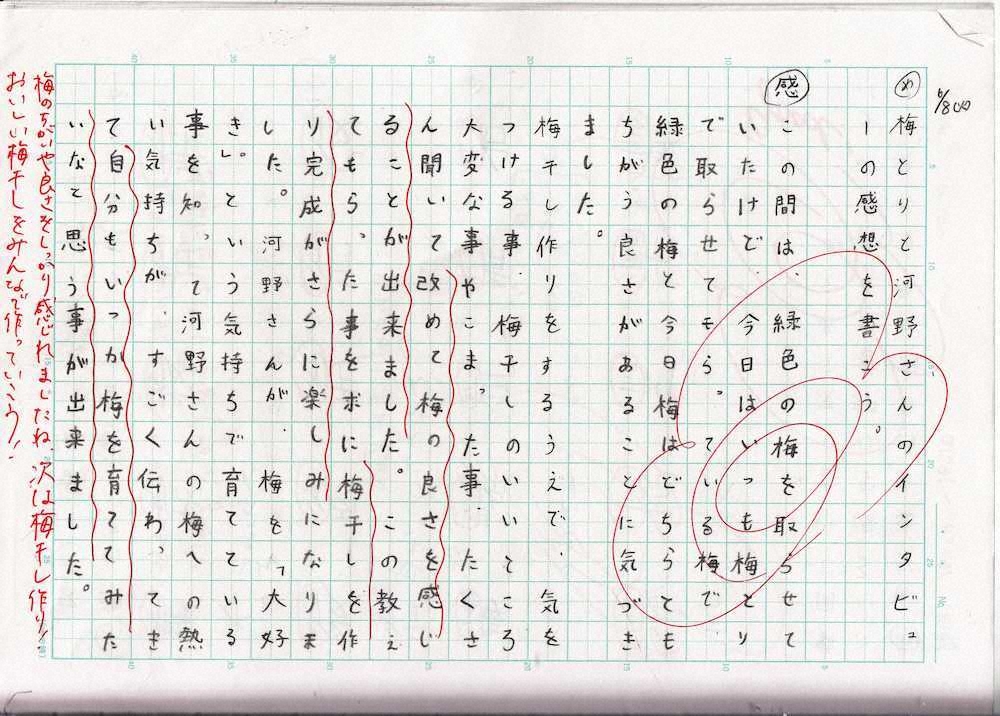 6/800
め 梅とりと河野さんのインタビュ
ーの感想を書こう。
感 この間は、緑色の梅を取らせて
いたけで、今日はいつも梅とり
で取らせてもらっている梅で
緑色の梅と今日梅はどちらとも
ちがう良さがあることに気づき
ました。
梅干し作りをするうえで、気を
つける事、梅干しのいいところ
大変な事やこまった事、たくさ
ん聞いて改めて梅の良さを感じ
ることが出来ました。この教え
てもらった事をに梅干しを作
り完成がさらに楽しみになりま
した。河野さんが、梅を「大好
き」。という気持ちで育てている
事を知って河野さんの梅への熱
い気持ちが、すごく伝わってき
て自分もいつか梅を育ててみた
いなと思う事が出来ました。
梅のちがいや良さをしっかり感じれましたね、次は梅干し作り！
おいしい梅干しをみんなで作っていこう！
5
10
15
20
25
30
35
40
No.